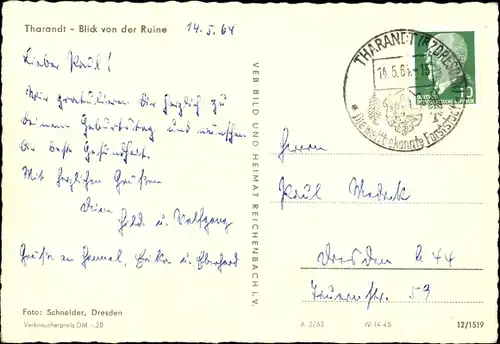 Tharandt - Blick von der Ruine
14.5.64
Lieber Paul!
Wir gratulieren Dir herzlich zu
Deinem Geburtstag und wünschen
Dir beste Gesundheit.
Mit herzlichen Grüßen
Deine
Hild. u. Wolfgang
Grüße an Hannel, Erika u. Eberhard
Foto: Schneider, Dresden
Verbraucherpreis DM -,20
VEB BILD UND HEIMAT REICHENBACH i. V.
THARANDT (BZ DRESDEN)
14.5.64
10
Herrn
Paul
Dresden A 44
53
A 3/63
IV-14-45
12/1519